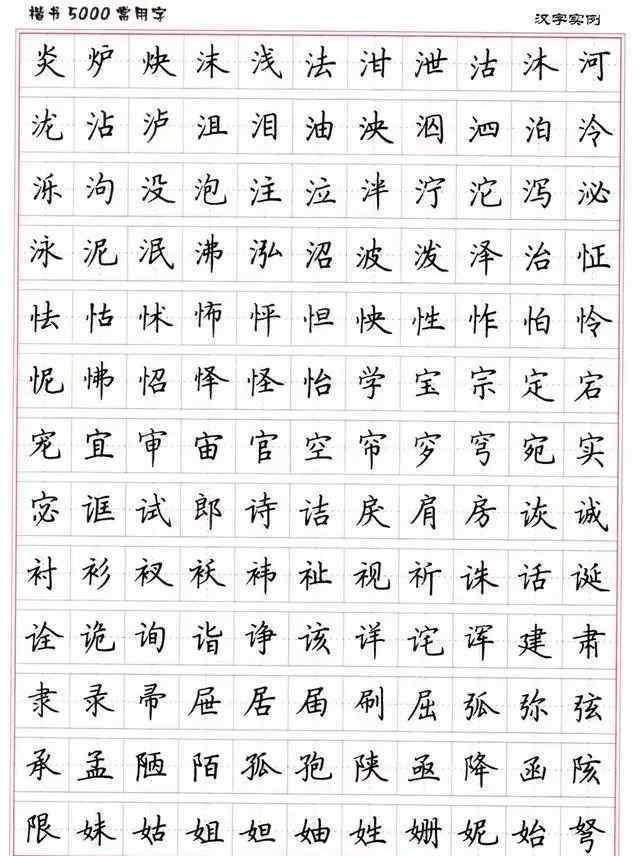 楷书5000常用字
汉字实例
炎炉炔沫浅法泔泄沽沐河
泷沾泸沮泪油泱泅泗泊泠
泺泃没泡注泣泮泞沱泻泌
泳泥泯沸泓沼波泼泽治怔
怯怙怵怖怦怛怏性怍怕怜
怩怫怊怿怪怡学宝宗定宕
宠宜审宙官空帘穸穹宛实
宓诓试郎诗诘戾肩房诙诚
衬衫衩袄袆祉视祈诛话诞
诠诡询诣诤该详诧诨建肃
隶录帚屉居届刷屈弧弥弦
承孟陋陌孤孢陕亟降函陔
限妹姑姐妲妯姓姗妮始驽